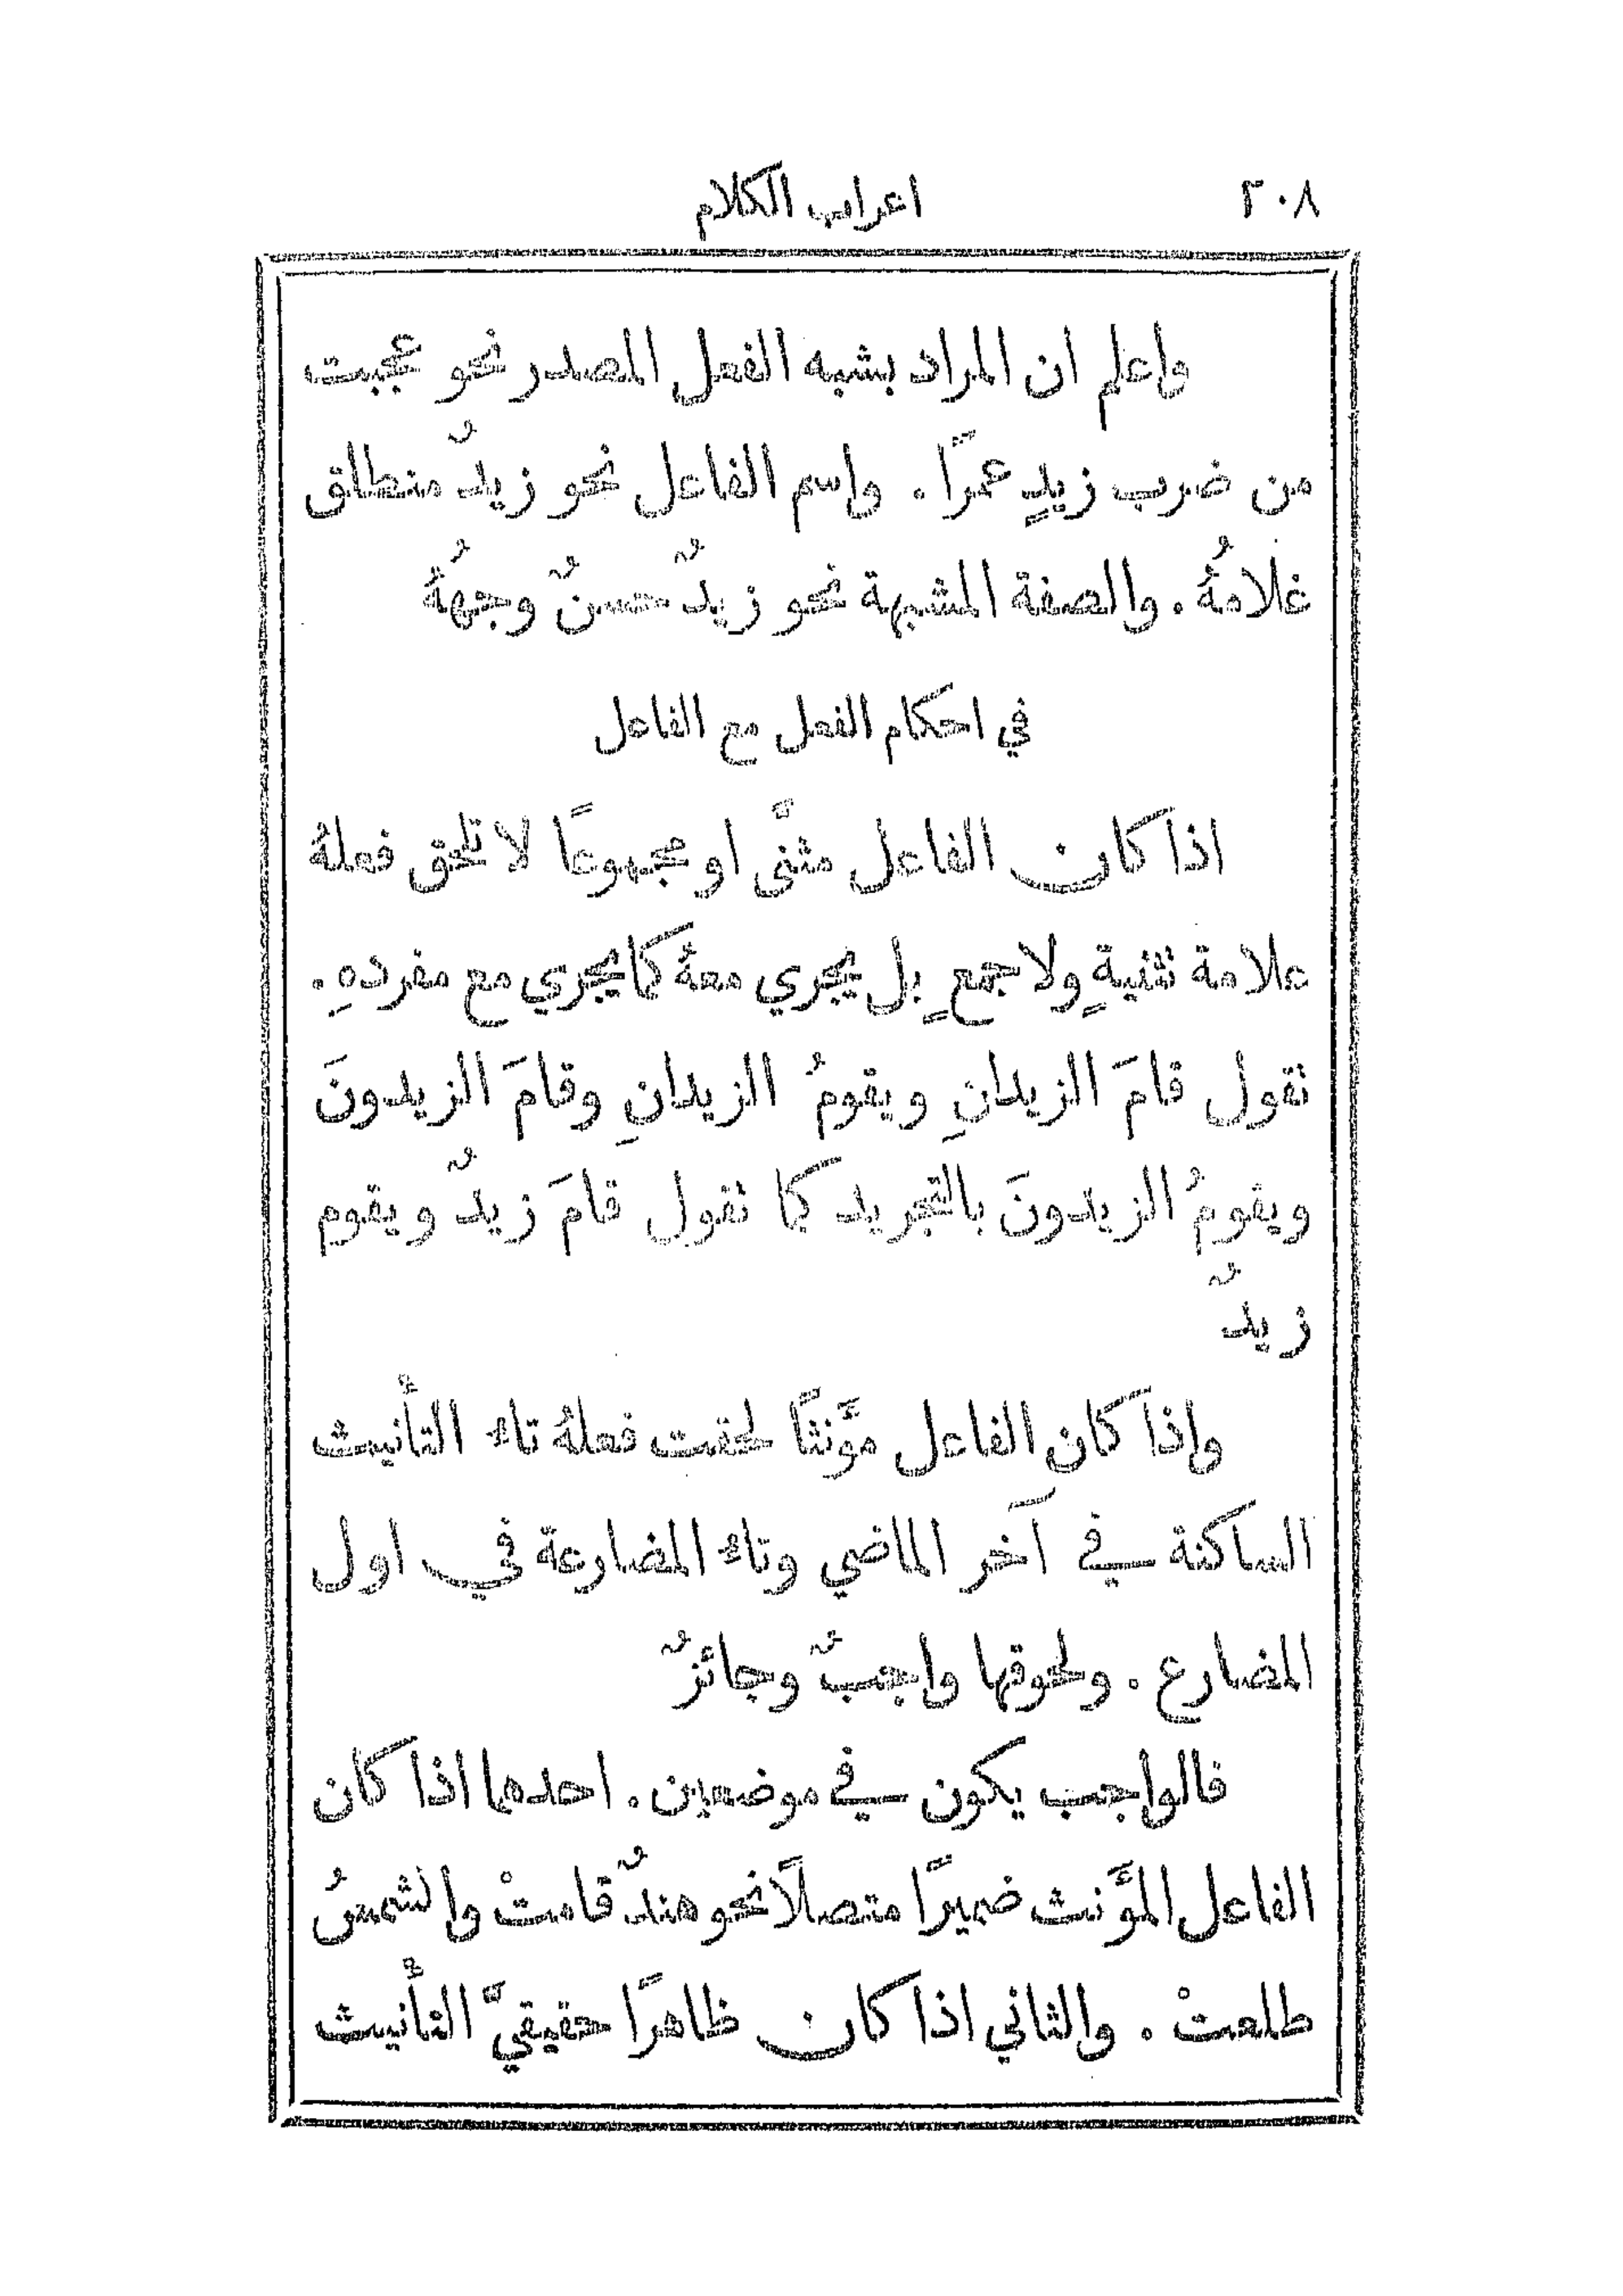 ٢٠٨ اعراب الكلام
واعلم ان المراد بشبه الفعل المصدر نحو عجبت
من ضرب زيدٍ عمرًا. واسم الفاعل نحو زيدٌ منطلق
غلامُهُ. والصفة المشبهة نحو زيدٌ حسنٌ وجههُ
في احكام الفعل مع الفاعل
اذا كان الفاعل مثنًّى او مجموعًا لا تلحق فعلهُ
علامة تثنيةٍ ولا جمعٍ بل يجري معهُ كما يجري مع مفردهِ.
تقول قامَ الزيدانِ ويقومُ الزيدانِ وقامَ الزيدونَ
ويقومُ الزيدونَ بالتجريد كما تقول قامَ زيدٌ ويقوم
زيدٌ
واذا كان الفاعل مؤَنثًا لحقت فعلهُ تاء التأنيث
الساكنة في آخر الماضي وتاء المضارعة في اول
المضارع. ولحوقها واجبٌ وجائزٌ
فالواجب يكون في موضعين. احدهما اذا كان
الفاعل المؤَنث ضميرًا متصلًا نحو هندٌ قامتْ والشمسُ
طلعتْ. والثاني اذا كان ظاهرًا حقيقيَّ التأنيث